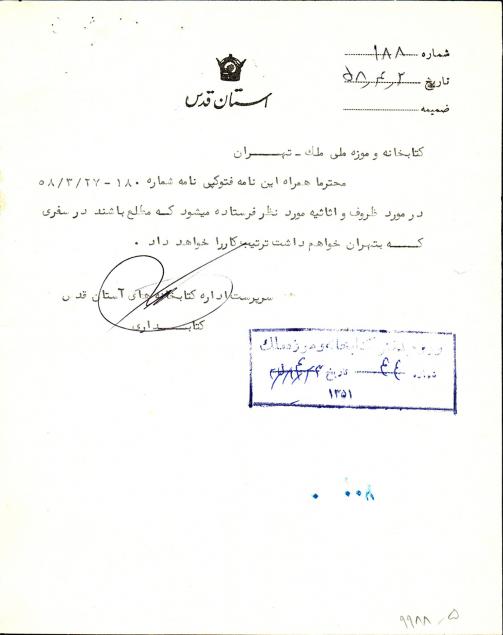 شماره ۱۸۸
تاریخ ۵۸٫۴٫۲
ضمیمه
استان قدس
کتابخانه و موزه ملی ملک ـ تهران
محترما همراه این نامه فتوکپی نامه شماره ۱۸۰ - ۵۸/۳/۲۷
در مورد ظروف و اثاثیه مورد نظر فرستاده میشود که مطلع باشند در سفری
که بتهران خواهم داشت ترتیب کار را خواهد داد .
سرپرست اداره کتابخانه های آستان قدس
کتابداری
کتابخانه و موزه ملک
شماره ۴۴ تاریخ
۱۳۵۱
۹۹۸۸٫۵